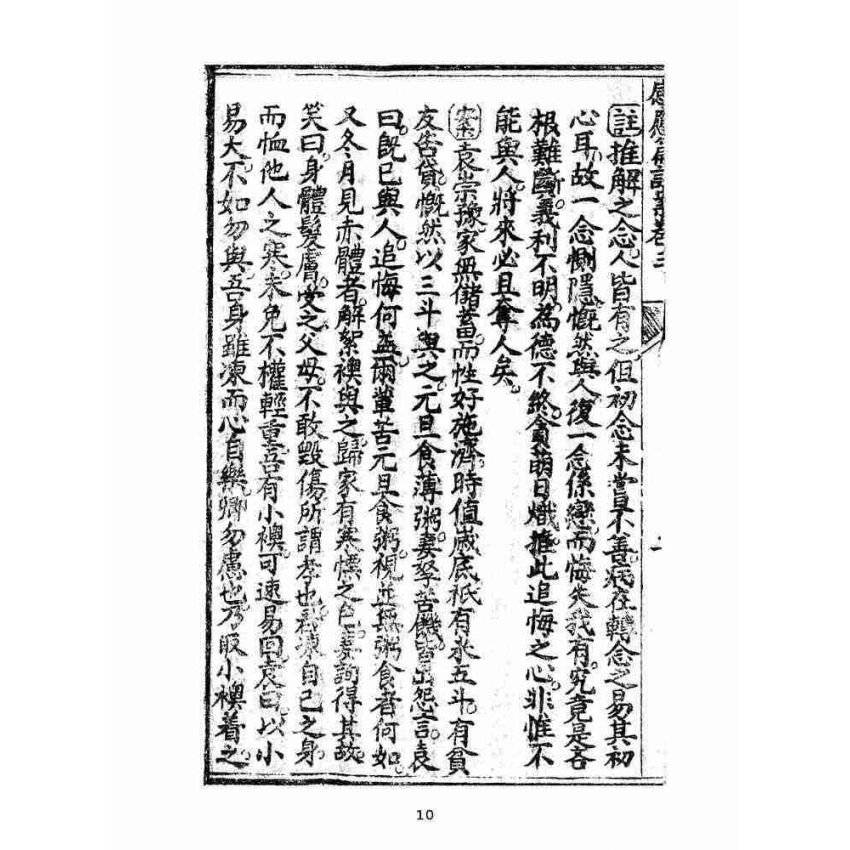 感應篇註案卷三
註推解之念人皆有之但初念未嘗不善病在轉念之易其初
心耳故一念惻隱慨然與人復一念係戀而悔失我有究竟是吝
根難斷義利不明為德不終貪萌日熾推此追悔之心非惟不
能與人將來必且奪人矣
案袁崇豫家無儲蓄而性好施濟時值歲底祇有米五斗有貧
友告貸慨然以三斗與之元旦食薄粥妻孥苦饑皆出怨言袁
曰既已與人追悔何益爾輩苦元旦食粥視並無粥食者何如
又冬月見赤體者解絮襖與之歸家有寒慄之色妻詢得其故
笑曰身體髮膚受之父母不敢毀傷所謂孝也君凍自己之身
而恤他人之寒未免不權輕重吾有小襖可速易回袁曰以小
易大不如勿與吾身雖凍而心自樂卿勿慮也乃取小襖着之
10